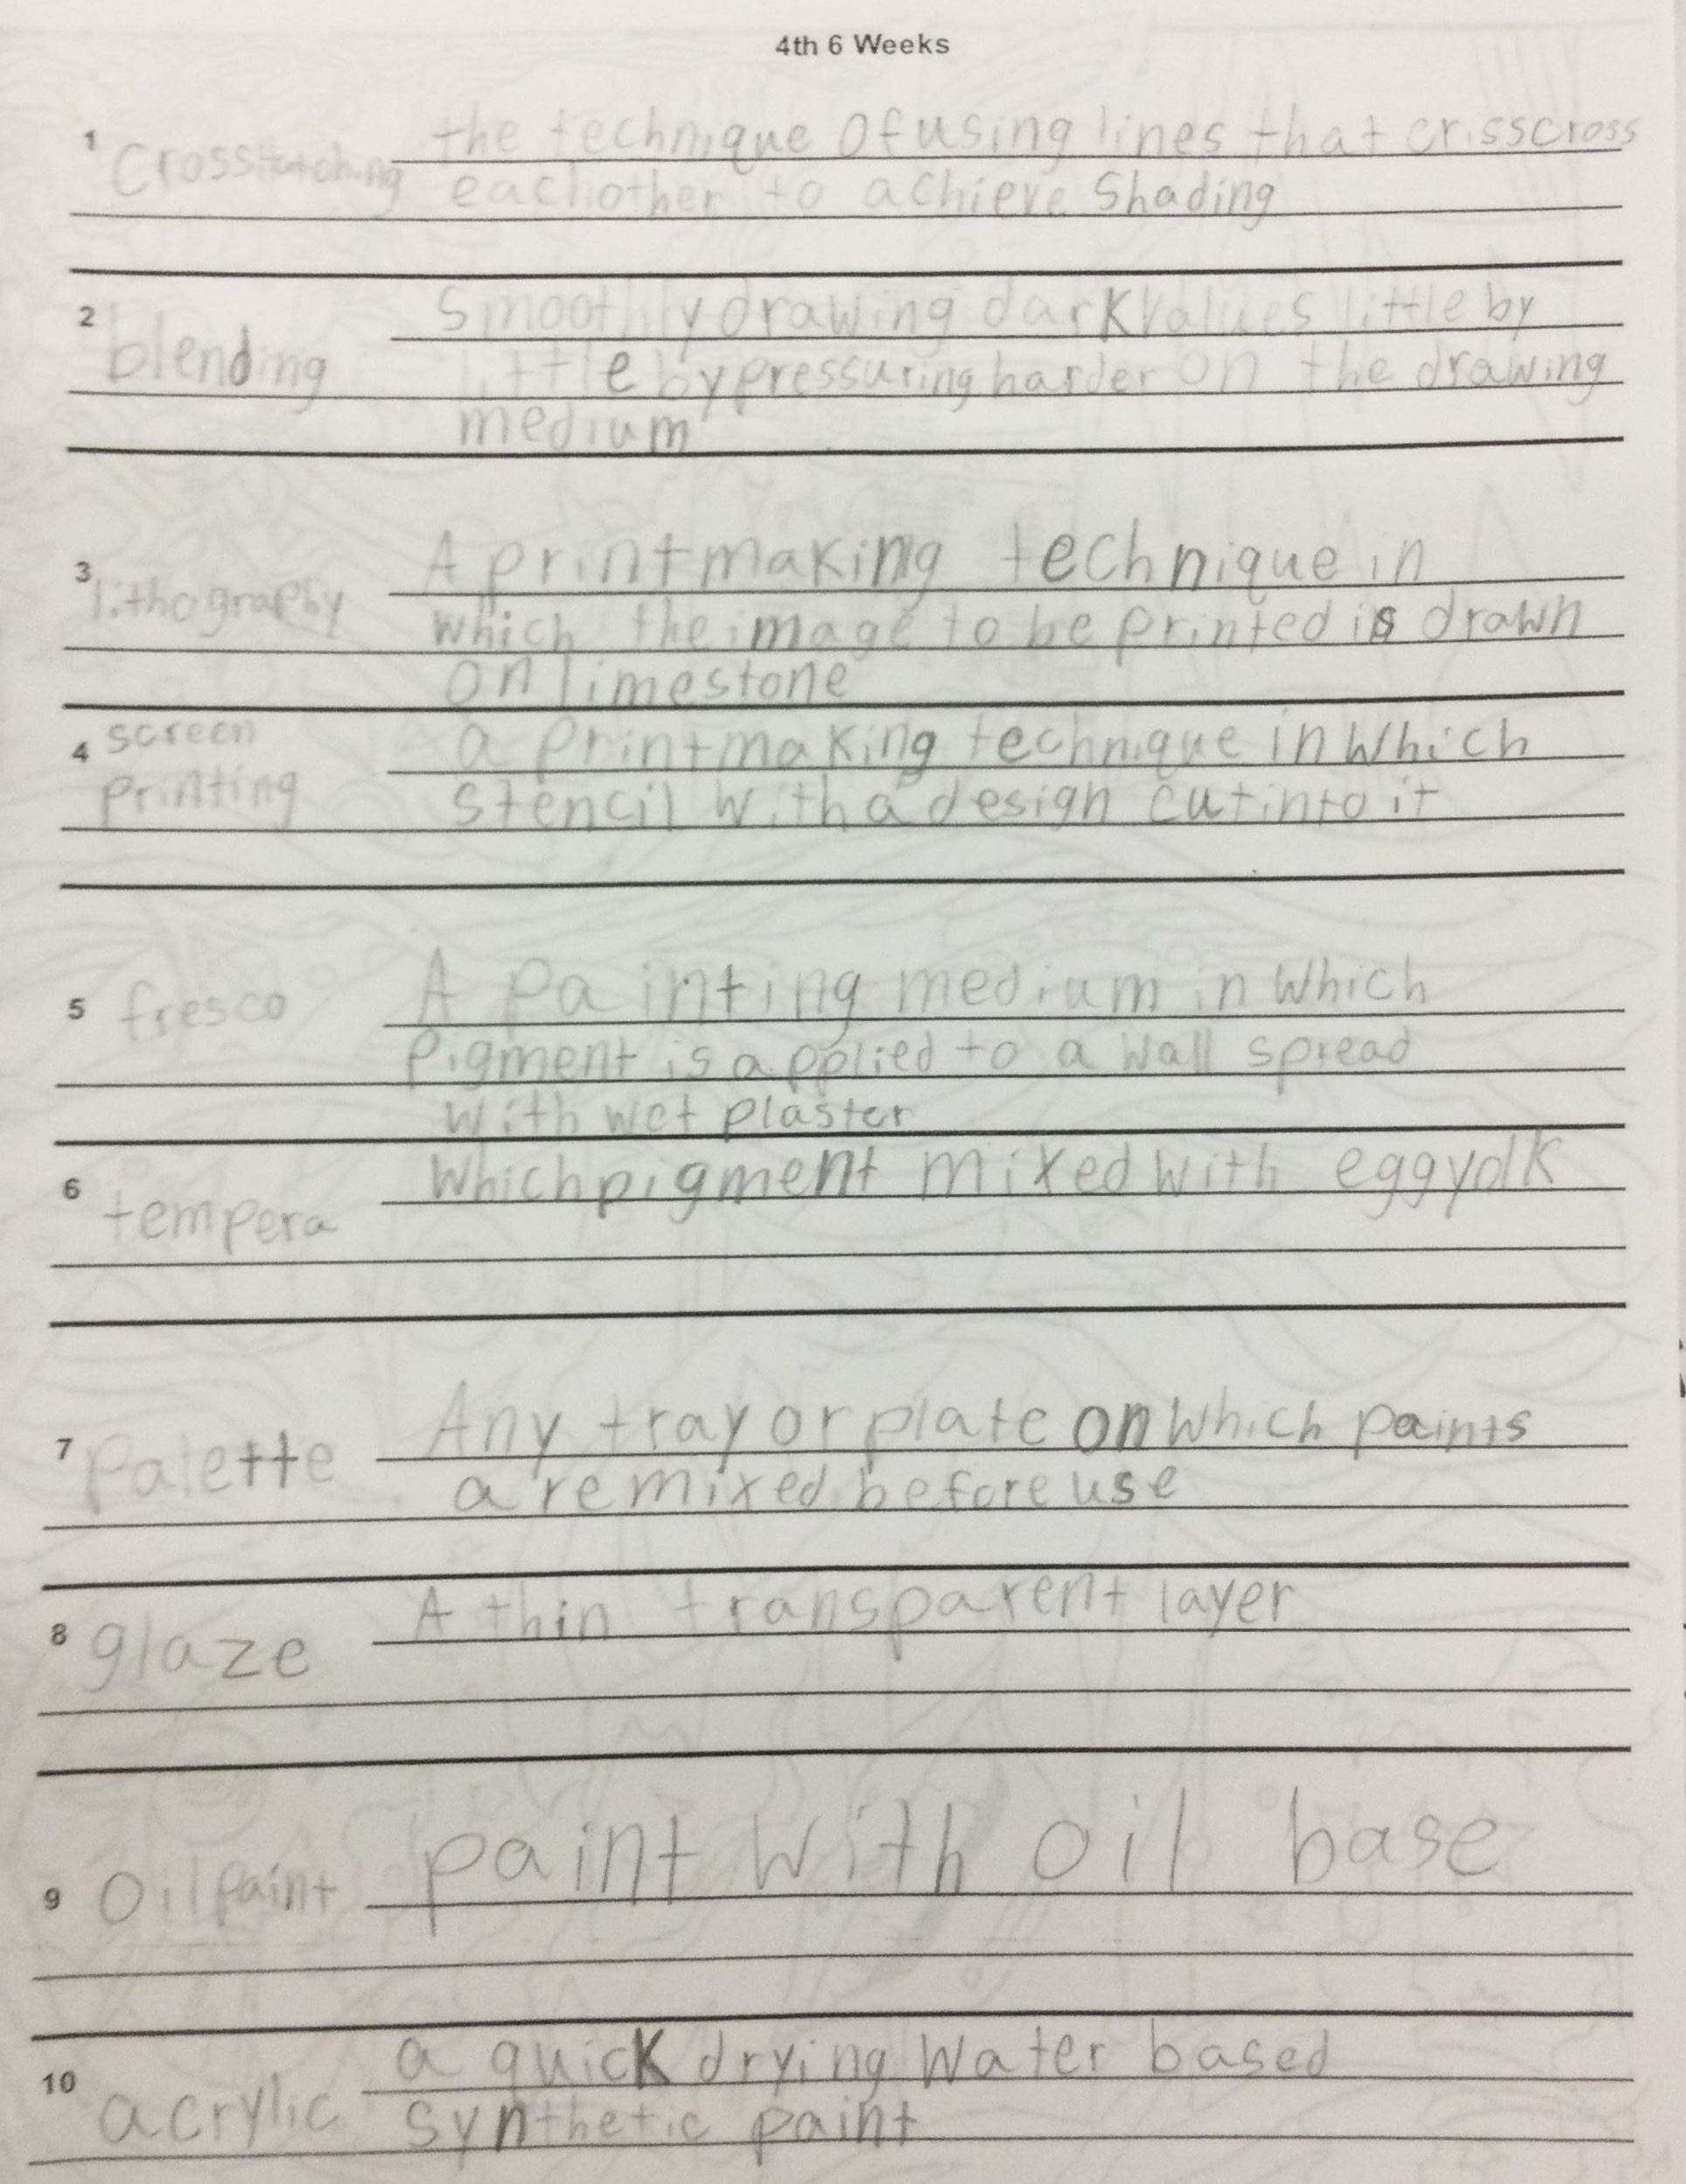 4th 6 Weeks
1 Crosshatching the technique of using lines that crisscross
eachother to achieve Shading
2 blending Smoothly drawing dark values little by
little by pressuring harder on the drawing
medium
3 lithography A printmaking technique in
which the image to be printed is drawn
on limestone
4 screen printing a printmaking technique in which
stencil with a design cut into it
5 fresco A painting medium in which
Pigment is applied to a wall spread
with wet plaster
6 tempera which pigment mixed with eggyolk
7 Palette Any tray or plate on which paints
are mixed before use
8 glaze A thin transparent layer
9 Oil paint paint with oil base
10 acrylic a quick drying water based
synthetic paint